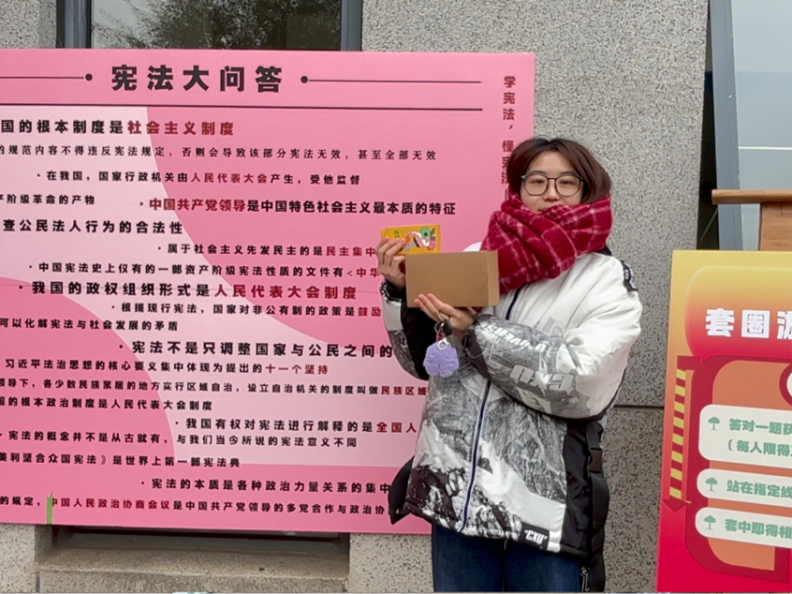 宪法大问答
学宪法，懂宪法
国的根本制度是社会主义制度
的规范内容不得违反宪法规定，否则会导致该部分宪法无效，甚至全部无效
·在我国，国家行政机关由人民代表大会产生，受他监督
产阶级革命的产物
·中国共产党领导是中国特色社会主义最本质的特征
查公民法人行为的合法性
·属于社会主义先发民主的是民主集中
·中国宪法史上仅有的一部资产阶级宪法性质的文件有<中华
·我国的政权组织形式是人民代表大会制度
·根据现行宪法，国家对非公有制的政策是鼓励
可以化解宪法与社会发展的矛盾
·宪法不是只调整国家与公民之间的
习近平法治思想的核心要义集中体现为提出的十一个坚持
领导下，各少数民族聚居的地方实行区域自治，设立自治机关的制度叫做民族区域
国的根本政治制度是人民代表大会制度
·我国有权对宪法进行解释的是全国人
·宪法的概念并不是从古就有，与我们当今所说的宪法意义不同
美利坚合众国宪法》是世界上第一部宪法典
·宪法的本质是各种政治力量关系的集中
的规定，中国人民政治协商会议是中国共产党领导的多党合作与政治协
"CXU"
套圈游
答对一题获
（每人限得
站在指定线
套中即得相